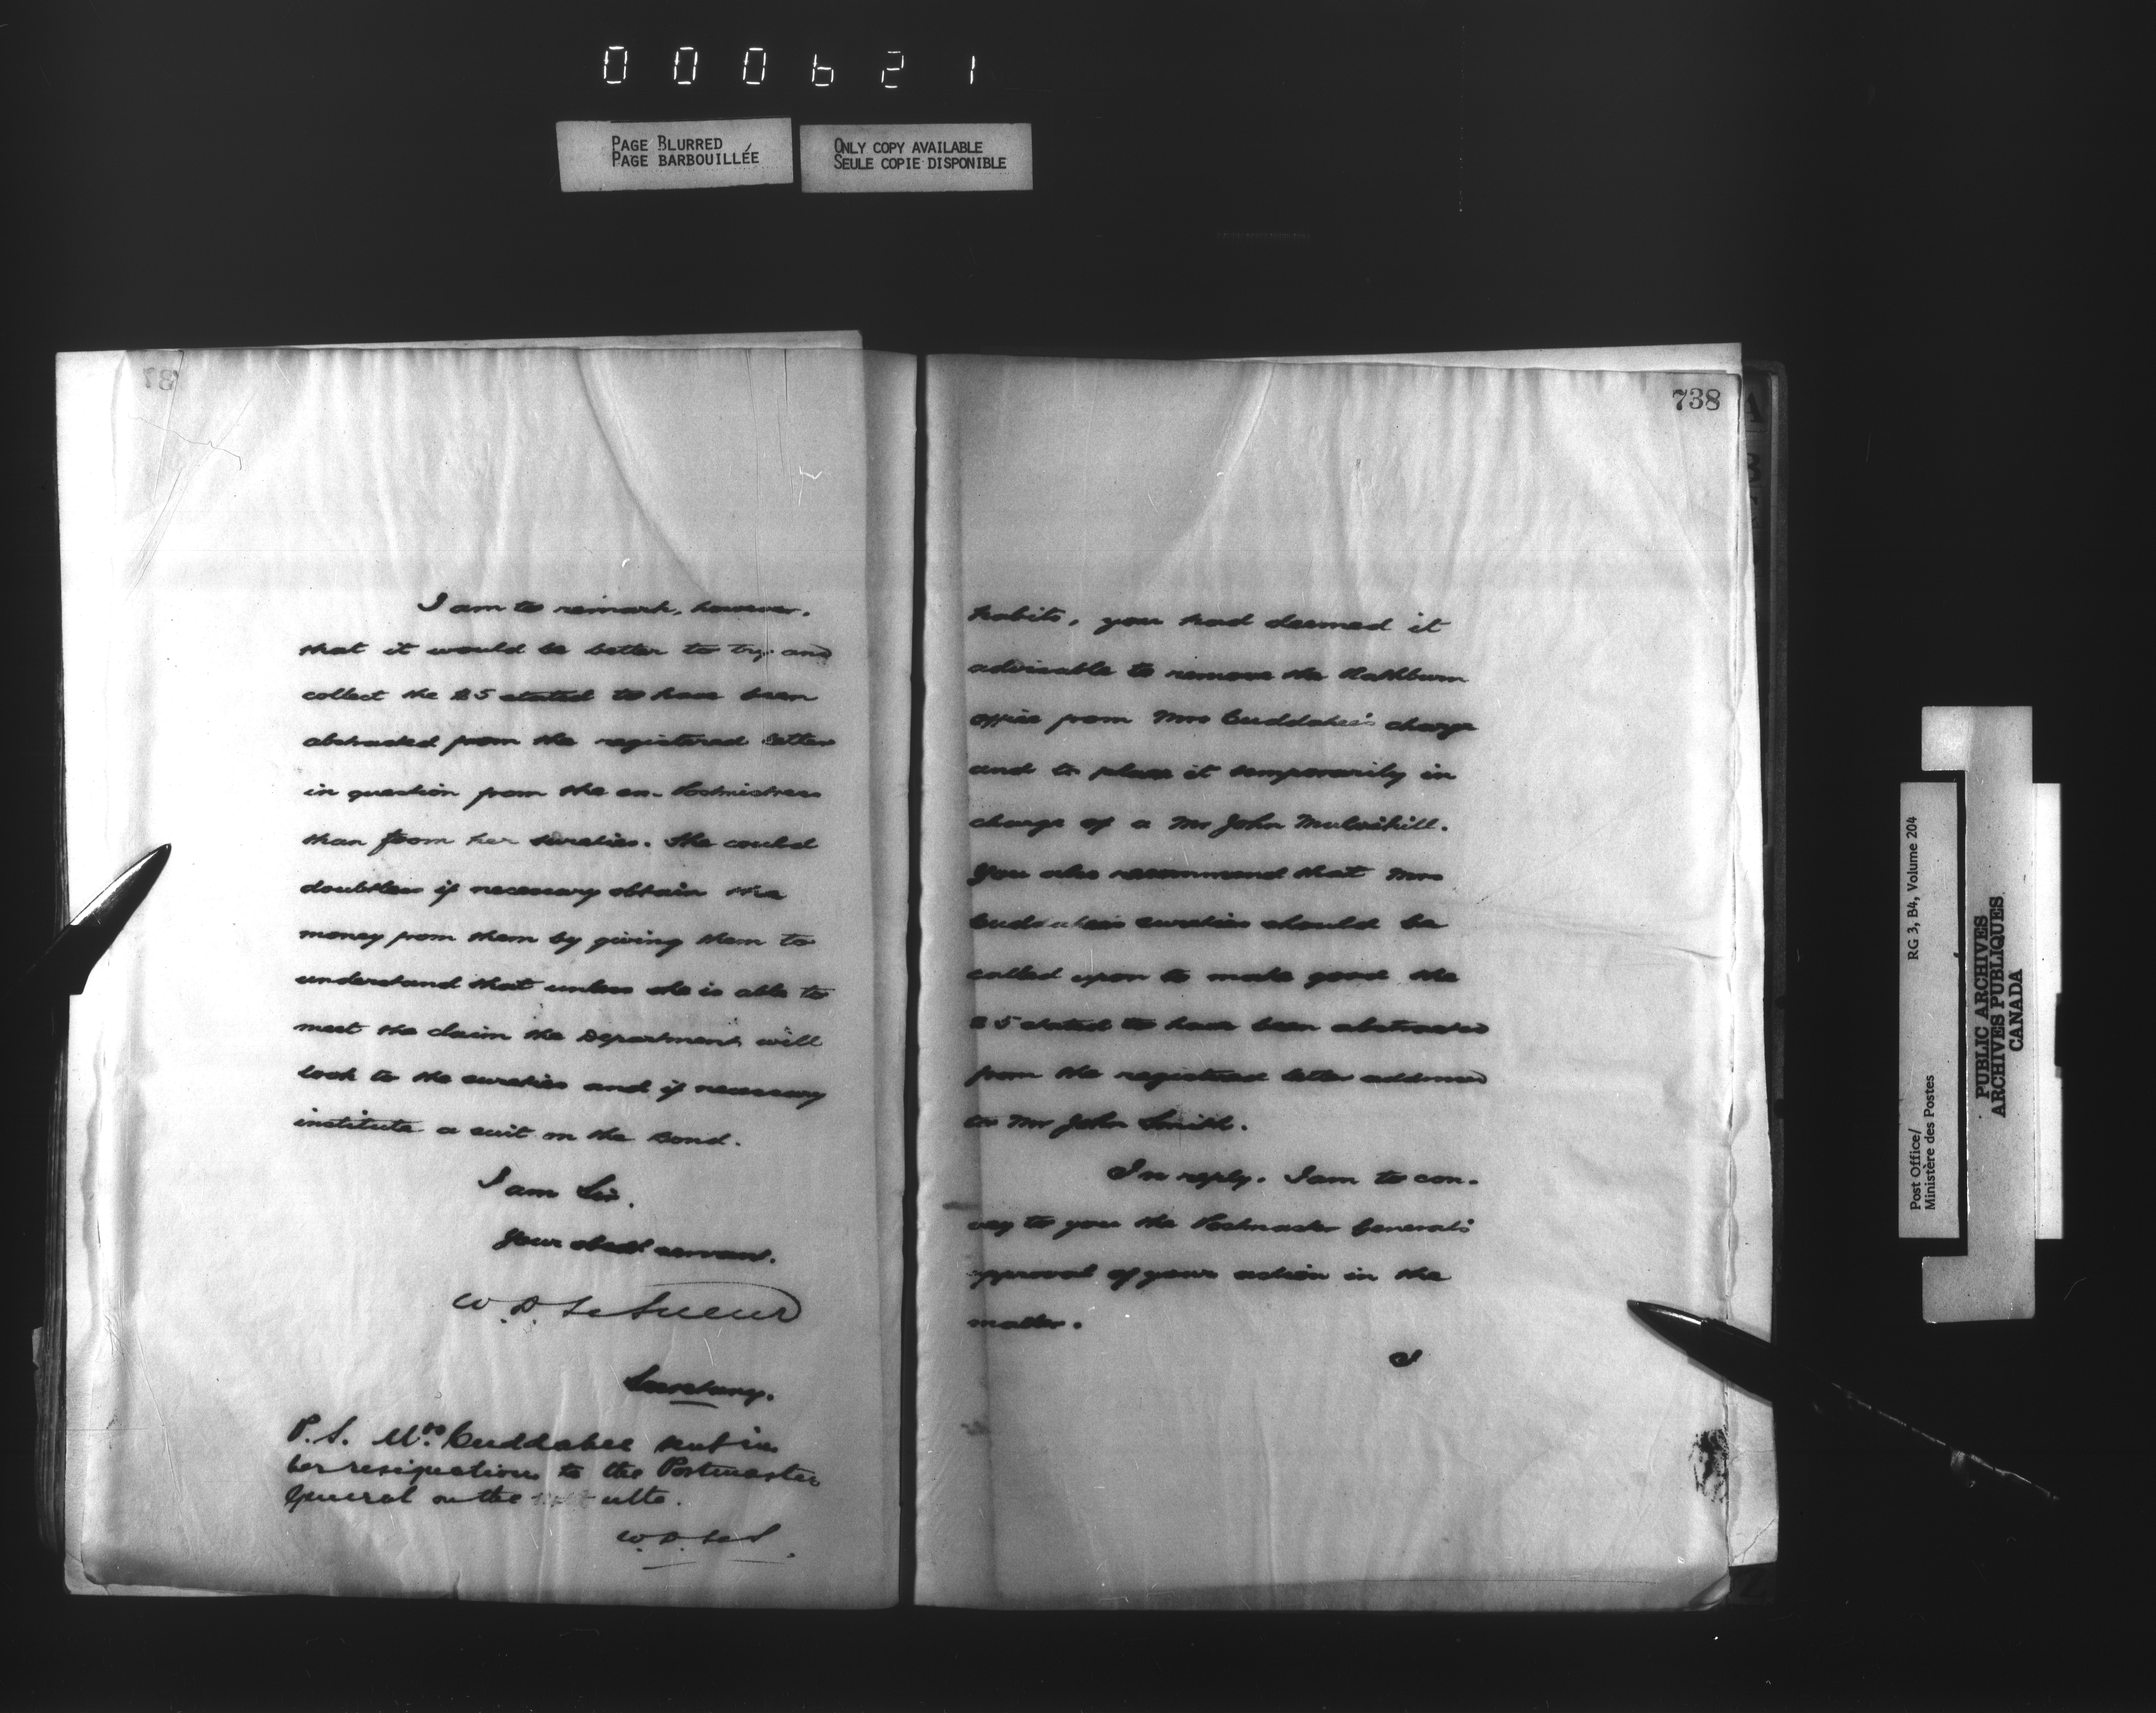 000621
PAGE BLURRED
PAGE BARBOUILLÉE
ONLY COPY AVAILABLE
SEULE COPIE DISPONIBLE
I am to remark, however,
that it would be better to try and
collect the $5 stated to have been
abstracted from the registered letter
in question from the ex-Postmistress
than from her sureties. She could
doubtless if necessary obtain the
money from them by giving them to
understand that unless she is able to
meet the claim the Department will
look to the sureties and if necessary
institute a suit on the Bond.
I am Sir,
Your obedt servant,
W. D. LeSueur
Secretary.
P.S. Mrs. Cuddahee sent in
her resignation to the Postmaster
General on the ulto.
W. D. LeS.
738
habits, you had deemed it
advisable to remove the Rathburn
office from Mrs Cuddahee's charge
and to place it temporarily in
charge of a Mr John Mulvihill.
You also recommend that Mrs
Cuddahee's sureties should be
called upon to make good the
$5 stated to have been abstracted
from the registered letter addressed
to Mr John Smith.
In reply, I am to con-
vey to you the Postmaster General's
approval of your action in the
matter.
I
Post Office/
Ministère des Postes
RG 3, B4, Volume 204
PUBLIC ARCHIVES
ARCHIVES PUBLIQUES
CANADA